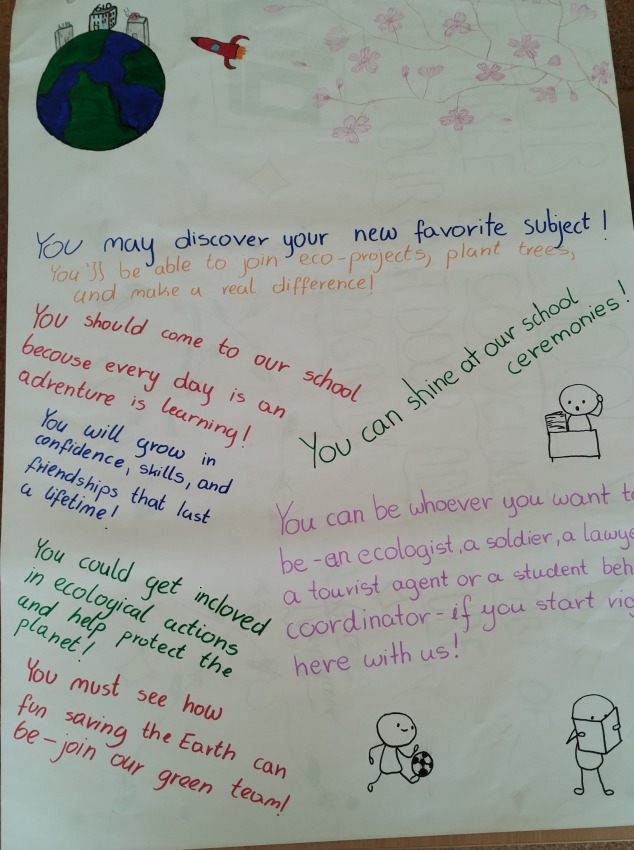 You may discover your new favorite subject!
You'll be able to join eco-projects, plant trees,
and make a real difference!
You should come to our school
becouse every day is an
adventure is learning!
You can shine at our school
ceremonies!
You will grow in
confidence, skills, and
friendships that last
a lifetime!
You can be whoever you want to
be-an ecologist, a soldier, a lawye
a tourist agent or a student beh
coordinator-if you start rig
here with us!
You could get incloved
in ecological actions
and help protect the
planet!
You must see how
fun saving the Earth can
be-join our green team!